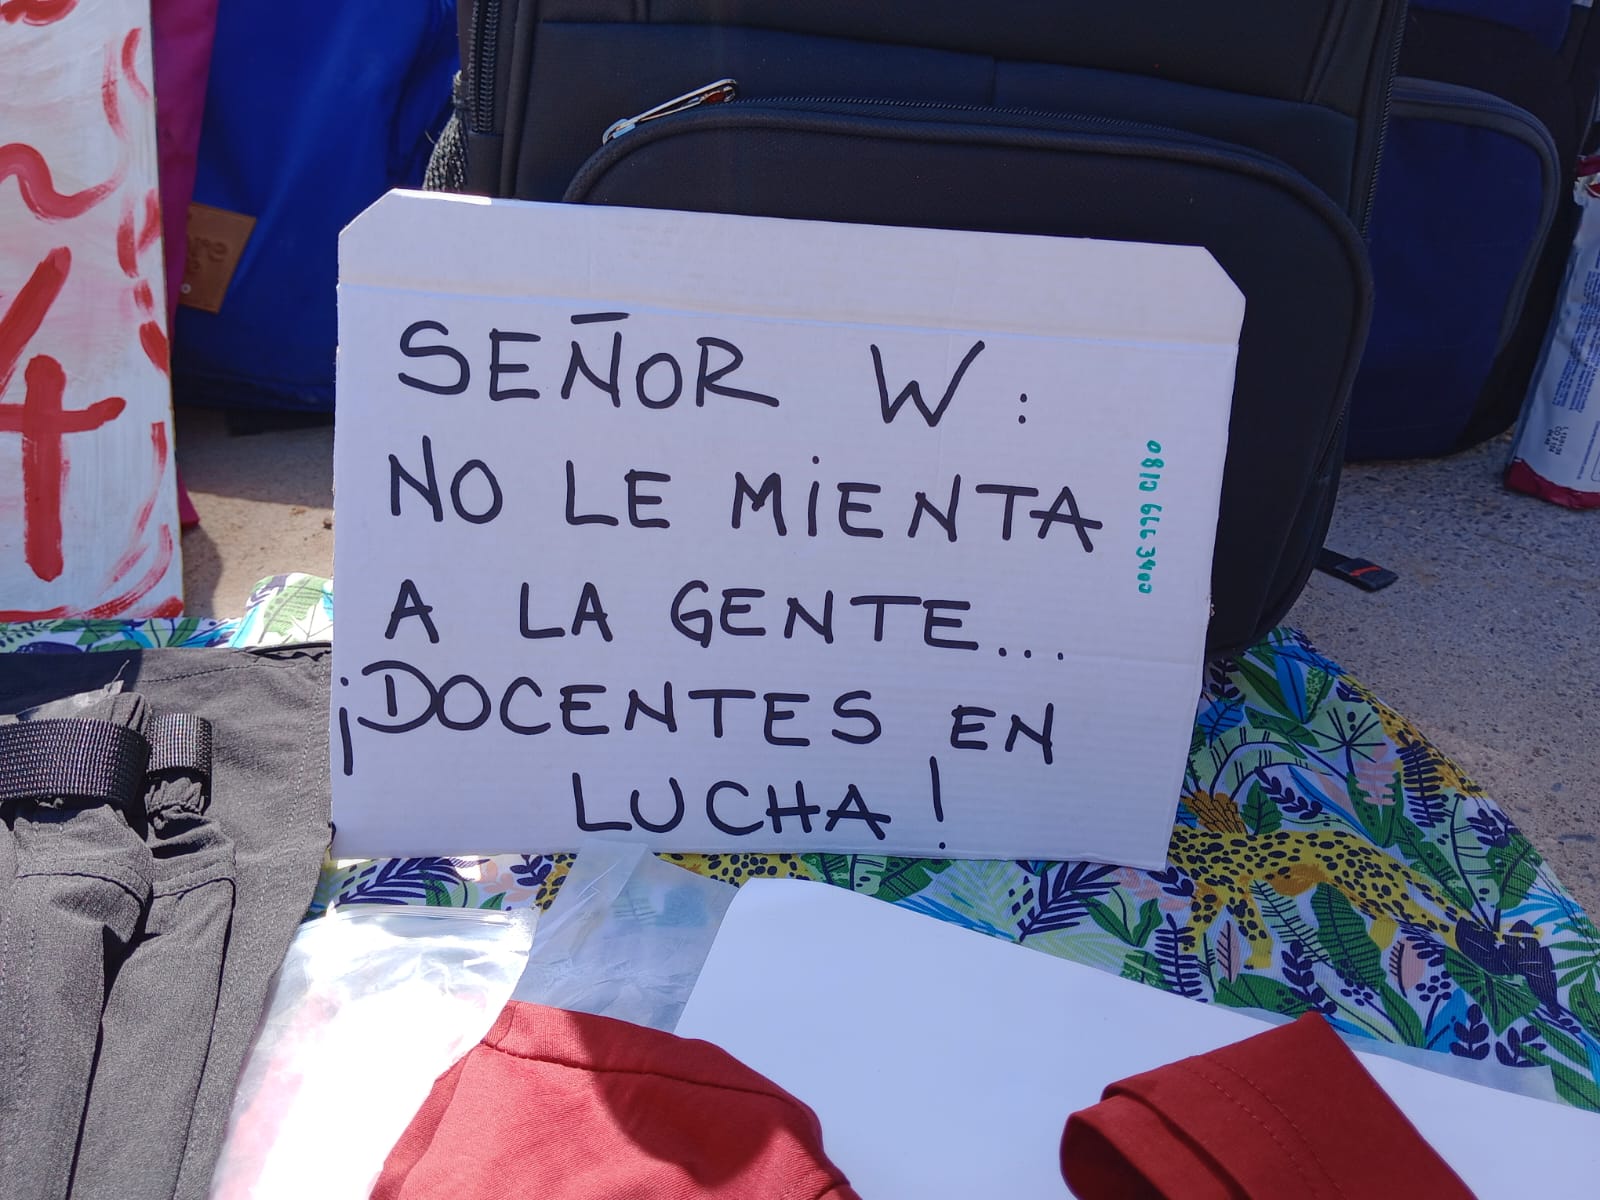 SEÑOR W:
NO LE MIENTA
A LA GENTE...
¡DOCENTES EN
LUCHA!
0810 666 3400
4